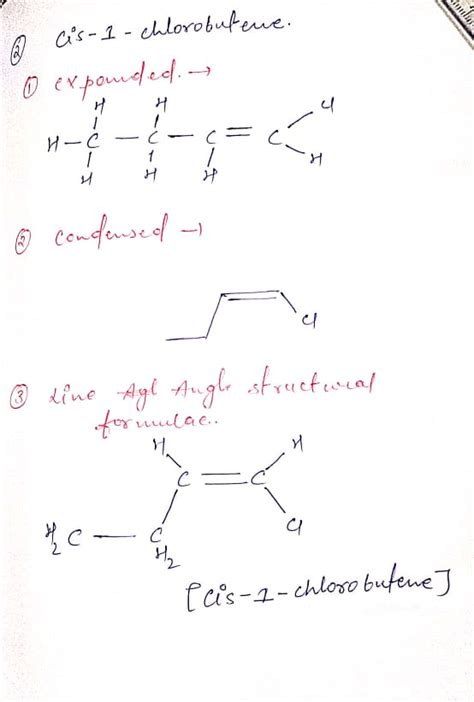 ② cis-1-chlorobutene.
① expounded. →
H H Cl
H-C - C - C = C
H H H H
② condensed →
Cl
③ Line Agl Angle structural
formulae..
H H
C = C
H2C - C Cl
H2
[cis-1-chlorobutene]